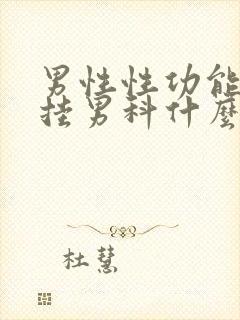 男性性功能
挂男科什麼
杜慧